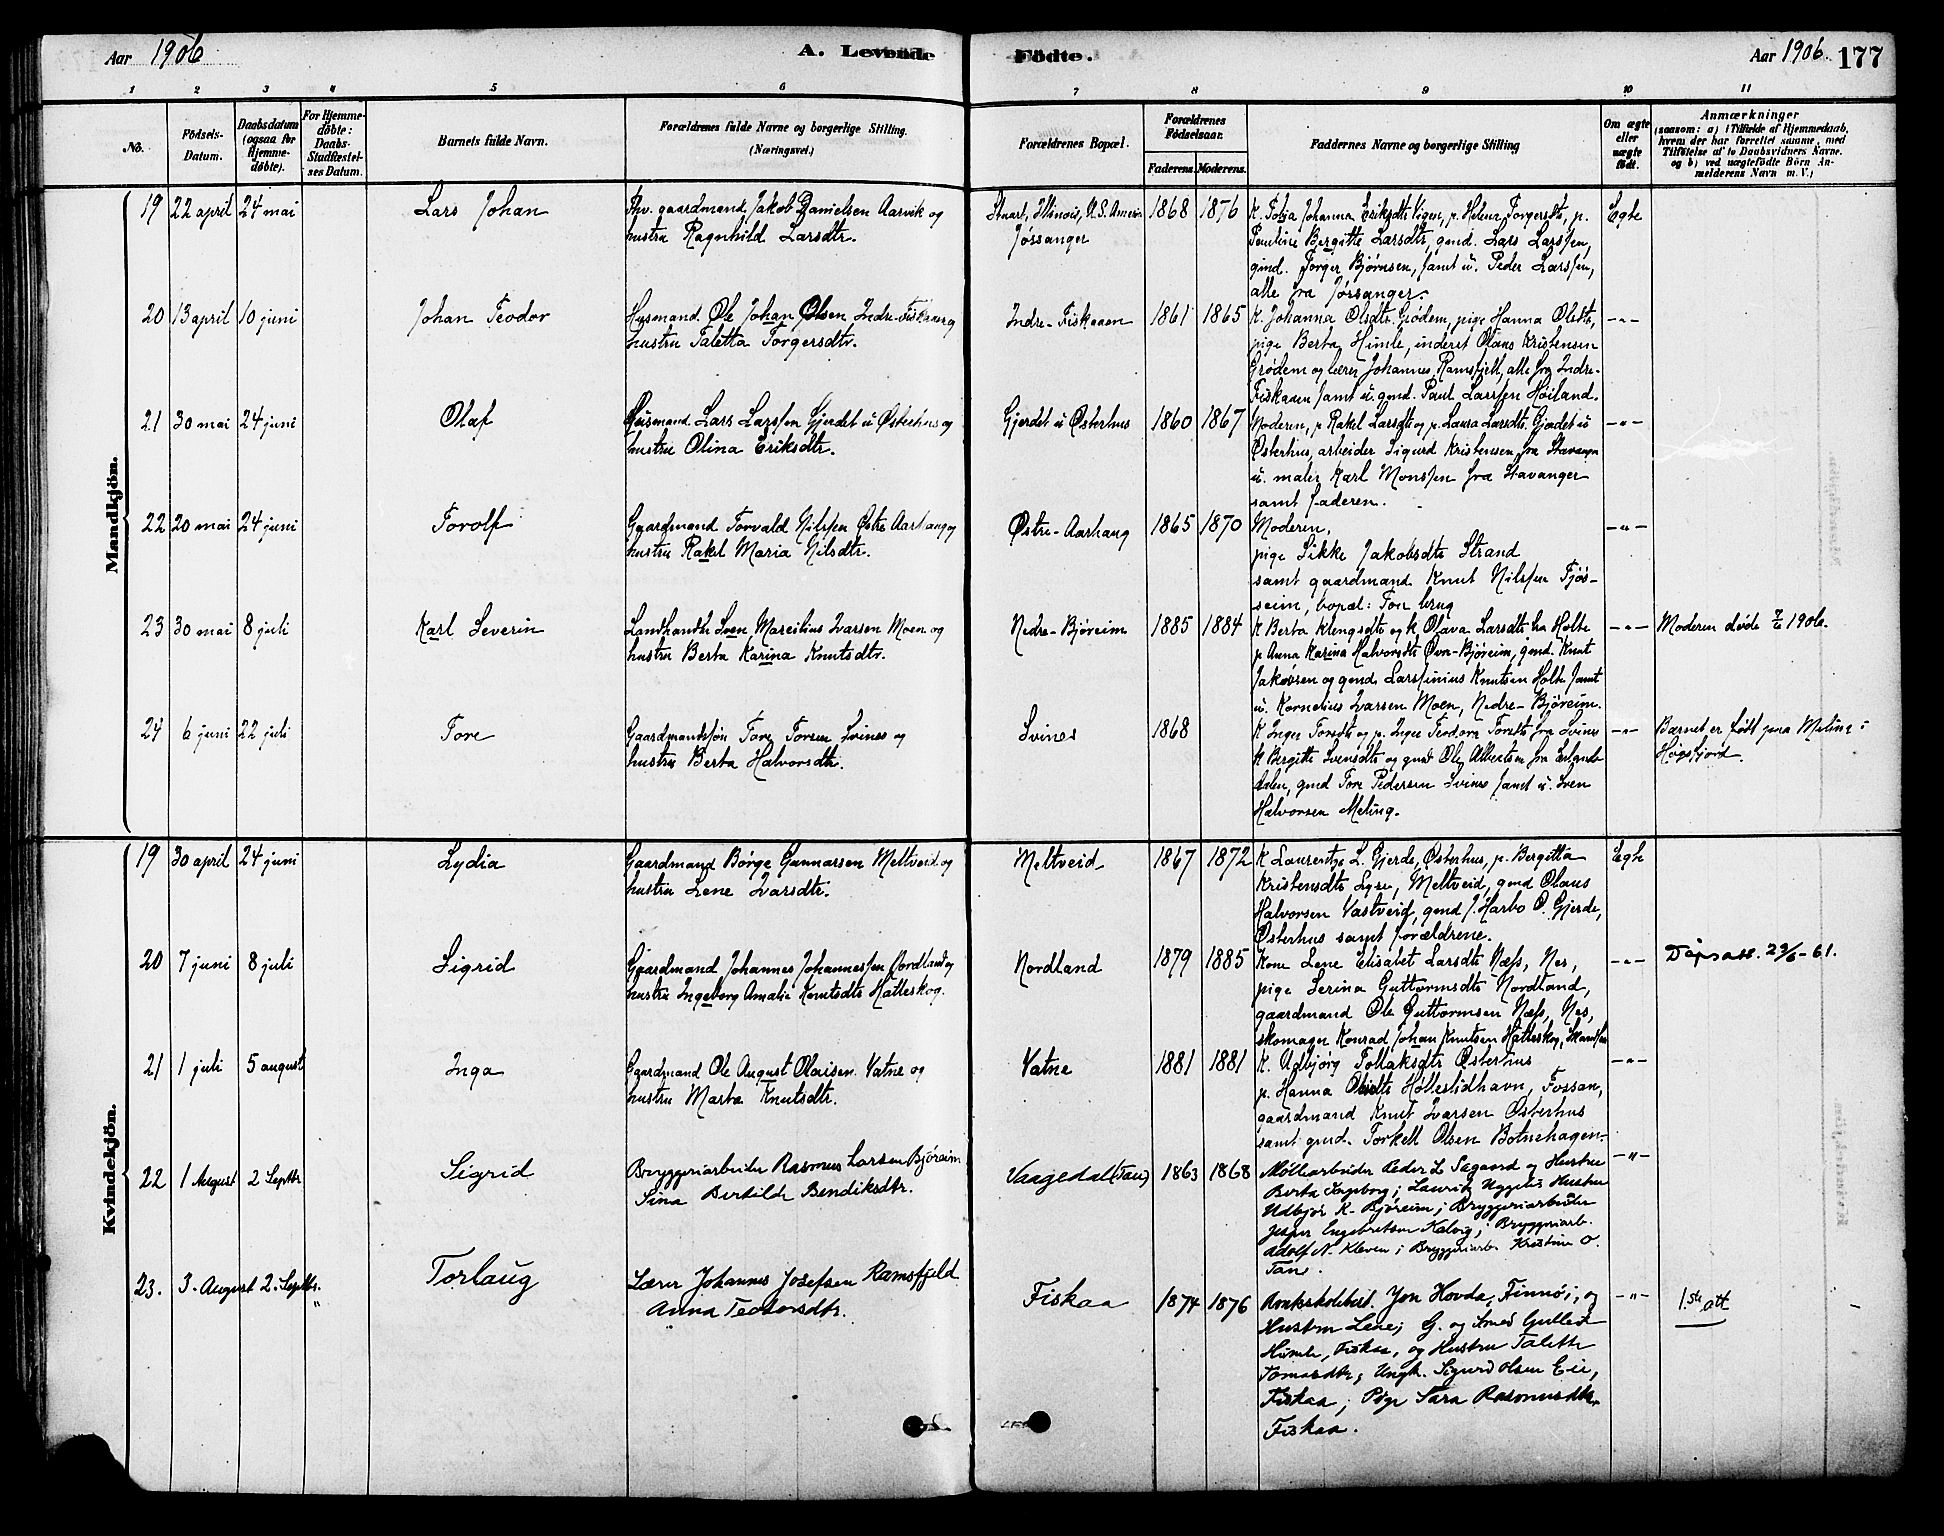 Aar 1906
A. Levende
Födte.
Aar 1906.
177
1 2 3 4 5 6 7 8 9 10 11
No.
Födsels-
Datum.
Daabsdatum
(ogsaa for
Hjemme-
døbte).
For Hjemme-
døbte:
Daabs-
Stadfæstel-
ses Datum.
Barnets fulde Navn.
Forældrenes fulde Navne og borgerlige Stilling.
(Næringsvei.)
Forældrenes Bopæl.
Forældrenes
Födselsaar.
Faderens. Moderens.
Faddernes Navne og borgerlige Stilling
Om ægte
eller
uægte
födt.
Anmærkninger
(saasom: a) i Tilfælde af Hjemmedaab,
hvem der har forrettet samme, med
Tilföielse af to Daabsvidners Navne.
og b) ved uægtefödte Börn An-
melderens Navn m. V.)
Mandkjön.
19 22 april 24 mai
Lars Johan
Fhv. gaardmand Jakob Danielsen Aarvik og
hustru Ragnhild Larsdtr.
Stuart, Illinois, U.S. Amerik.
Jøssanger
1868 1876
K. Tobia Johanna Eriksdtr Vigen, p. Helena Torgersdtr, p.
Pauline Bergitte Larsdtr, gmd. Lars Larssen,
gmd. Torger Bjørnsen, samt u. Peder Larssen,
alle fra Jøssanger.
Egte
20 13 april 10 juni
Johan Teodor
Husmand Ole Johan Olsen Indre-Fiskaaen og
hustru Taletta Torgersdtr.
Indre-Fiskaaen
1861 1865
K. Johanna Olsdtr. Grødem, pige Hanna Olsdtr,
pige Berta Humle, inderst Olaus Kristensen
Grødem og lærer Johannes Ramsfjell, alle fra Indre-
Fiskaaen samt u. gmd. Paul Larssen Høiland.
-"-
21 30 mai 24 juni
Olaf
Husmand Lars Larssen Gjerdet u Østerhus og
hustru Olina Eriksdtr.
Gjerdet u Østerhus
1860 1867
Moderen, p Rakel Larsdtr og p. Laura Larsdtr. Gjerdet u
Østerhus, arbeider Sigurd Kristensen fra Stavanger
u. maler Karl Monssen fra Stavanger
samt faderen.
-"-
22 20 mai 24 juni
Torolf
Gaardmand Torvald Nilssen Østre Aarhaug og
hustru Rakel Maria Nilsdtr.
Østre-Aarhaug
1865 1870
Moderen,
pige Sikke Jakobsdtr Strand
samt gaardmand Knut Nilssen Tjøs-
seim, bopæl: Fon brug
-"-
23 30 mai 8 juli
Karl Severin
Landhandler Sven Marcelius Ivarsen Moen og
hustru Berta Karina Knutsdtr.
Nedre-Bjøreim
1885 1884
K Berta Klengsdtr og K Olava Larsdtr fra Holte
p Anna Karina Halvorsdtr Øvre-Bjøreim, gmd. Knut
Jakobsen og gmd Larssinius Knutsen Holte samt
u. Kornelius Ivarsen Moen, Nedre-Bjøreim.
-"-
Moderen døde 7/6 1906.
24 6 juni 22 juli
Tore
Gaardmandssøn Tore Torsen Svines og
hustru Berta Halvorsdtr.
Svines
1868
K Inger Toresdtr og p. Inger Teodora Toresdtr fra Svines
K Bergitte Svensdtr og gmd Ole Albertsen fra Erlands-
dalen, gmd Tore Pedersen Svines samt u. Sven
Halvorsen Meling.
-"-
Barnet er født paa Meling i
Høgsfjord.
Kvindekjön.
19 30 april 24 juni
Lydia
Gaardmand Børge Gunnarsen Meltveid og
hustru Lene Ivarsdtr.
Meltveid
1867 1872
K Laurentze L. Gjerde, Østerhus, p. Bergitta
Kristensdtr Lyse, Meltveid, gmd Olaus
Halvorsen Vastveid, gmd J. Harbo O. Gjerde,
Østerhus samt forældrene.
Egte
20 7 juni 8 juli
Sigrid
Gaardmand Johannes Johannessen Nordland og
hustru Ingeborg Amalie Knutsdtr Hatteskog.
Nordland
1879 1885
Kone Lene Elisabet Larsdtr Næss, Nes,
pige Serina Guttormsdtr Nordland,
gaardmand Ole Guttormsen Næss, Nes,
skomager Konrad Johan Knutsen Hatteskog,
-"-
Dåpsatt. 23/6-61.
21 1 juli 5 august
Inga
Gaardmand Ole August Olaisen Vatne og
hustru Marta Knutsdtr.
Vatne
1881 1881
K. Udbjørg Tollaksdtr Østerhus
p. Hanna Olsdtr Hølleslidhavn, Fossan,
gaardmand Knut Ivarsen Østerhus
samt gmd. Torkell Olsen Botnehagen
-"-
22 1 August 2 Septbr
Sigrid
Bryggeriarbeider Rasmus Larsen Björeim
Sina Bertilde Bendiksdtr.
Vaagedal (Tau)
1863 1868
Møllearbeider Peder L Sægaard og Hustru
Berta Ingeborg; Lauritz Nygaards Hustru
Udbjör K. Björeim; Bryggeriarbeider
Jesper Engebretsen Kalvig; Bryggeriarb.
Adolf N. Kleven; Bryggeriarb. Kristine O.
Tau.
-"-
23. 3. August 2. Septbr.
Torlaug
Lærer Johannes Josefsen Ramsfjeld
Anna Teodorsdtr.
Fiskaa
1874 1876
Jon Hovda, Finnöi, og
Hustru Lene; G. og Smed Gullek
Humle, Fiskaa, og Hustru Talette
Tomasdtr; Ungk. Sigurd Olsen Eie,
Fiskaa; Pige Sara Rasmusdtr.
Fiskaa.
-"-
1.ste att